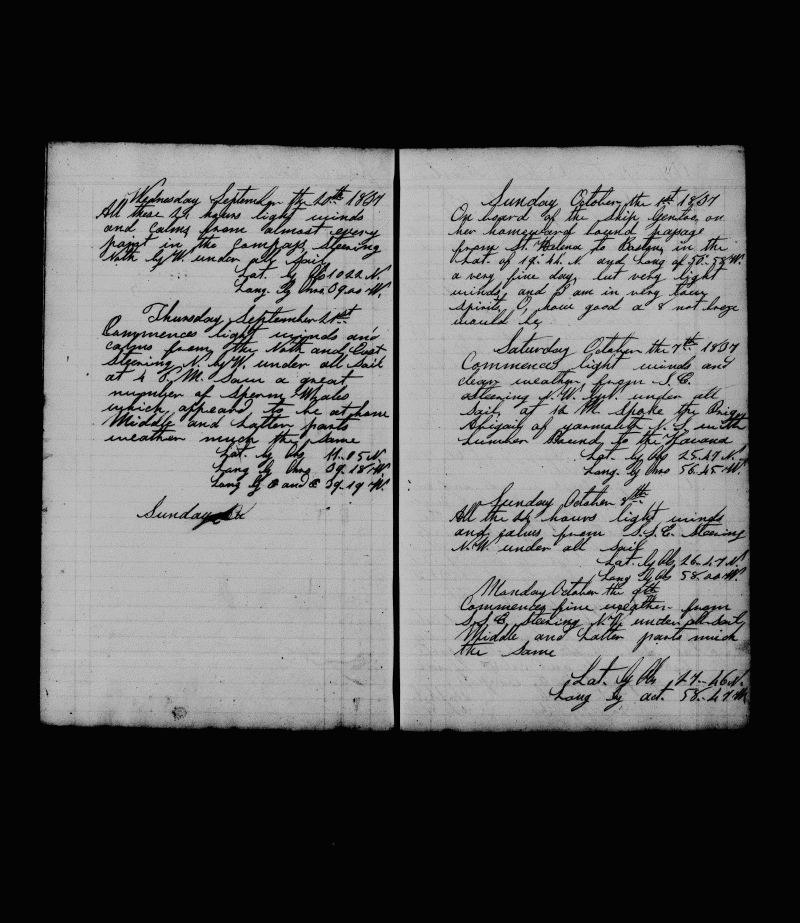 Wednesday September the 20th 1837
All these 24 hours light winds
and calms from almost every
point in the compass steering
Noth by W. under all Sail
Lat. by Ob 10 22 N.
Long. by Chro 39.00 W.
Thursday September 21st
Commences light winds and
calms from the Noth and East
Steering N. by W. under all Sail
at 4 P. M. Saw a great
number of Sperm Whales
which appears to be at home
Middle and Latter parts
weather much the Same
Lat. by Obs 11.05 N.
Long by Chro 39.18 W.
Long by and 39.19 W.
Sunday
Sunday October the 1st 1837
On board of the Ship on
her homeward bound passage
from St. Halena to Boston, in the
Lat. of 19. 44. N and Long of 50. 58 W.
a very fine day, but very light
winds, and I am in very low
Spirits, O, how good a 8 not breeze
would be
Saturday October the 7th 1837
Commences light winds and
clear weather from S. E.
Steering N. W. under all
Sail, at 12 M. Spoke the Brig
Abigail of yarmouth N. S. with
Lumber Bound to the Havana
Lat. by Ob 25.47 N.
Long. by Chro 56.45 W.
Sunday October 8th
All the 24 hours light winds
and calms from S. S. E. Steering
N. W. under all Sail
Lat. by Ob 26.47 N.
Long by Ob 58.00 W.
Monday October the 9th
Commences fine weather from
S. S. E. Steering N. W. under all Sail,
Middle and Latter parts much
the Same
Lat. by Ob 27.46 N.
Long by act. 58.47 W